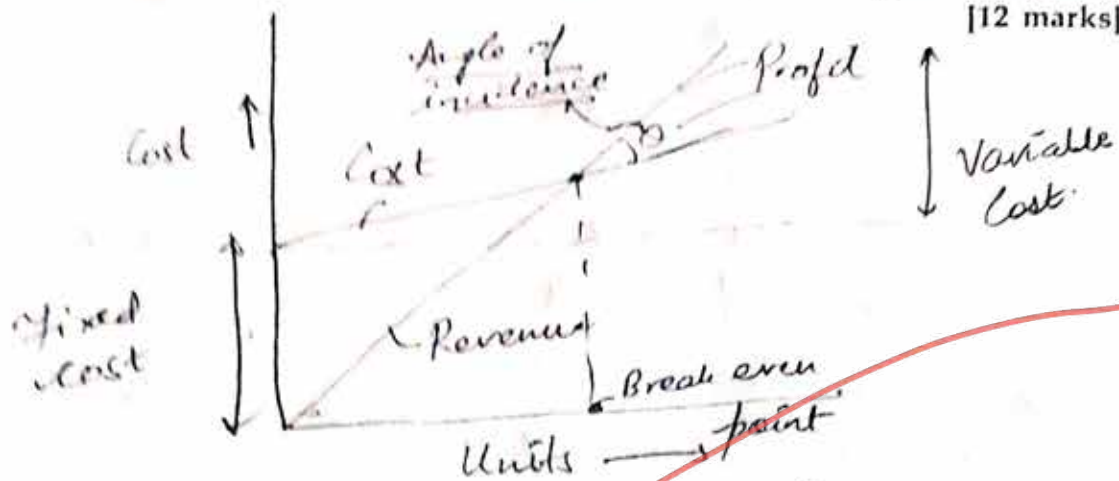 [12 marks]
Angle of
incidence
Profit
Cost
Cost
Variable
Cost.
Fixed
cost
Revenue
Break even
point
Units